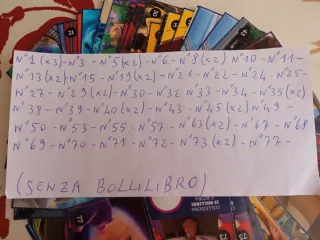 N°1 (x3) - N°3 - N°5 (x2) - N°6 - N°8 (x2) N°10 - N°11 -
N°13 (x2) - N°15 - N°19 (x2) - N°21 - N°22 - N°24 - N°25 -
N°27 - N°29 (x2) - N°30 - N°32 N°33 - N°34 - N°35 (x2)
N°38 - N°39 - N°40 (x2) - N°43 - N°45 (x2) N°49 -
N°50 - N°53 - N°55 - N°57 - N°63 (x2) - N°67 - N°68
N°69 - N°70 - N°71 - N°72 - N°73 (x2) - N°77 -
(SENZA BOLLILIBRO)
77
73